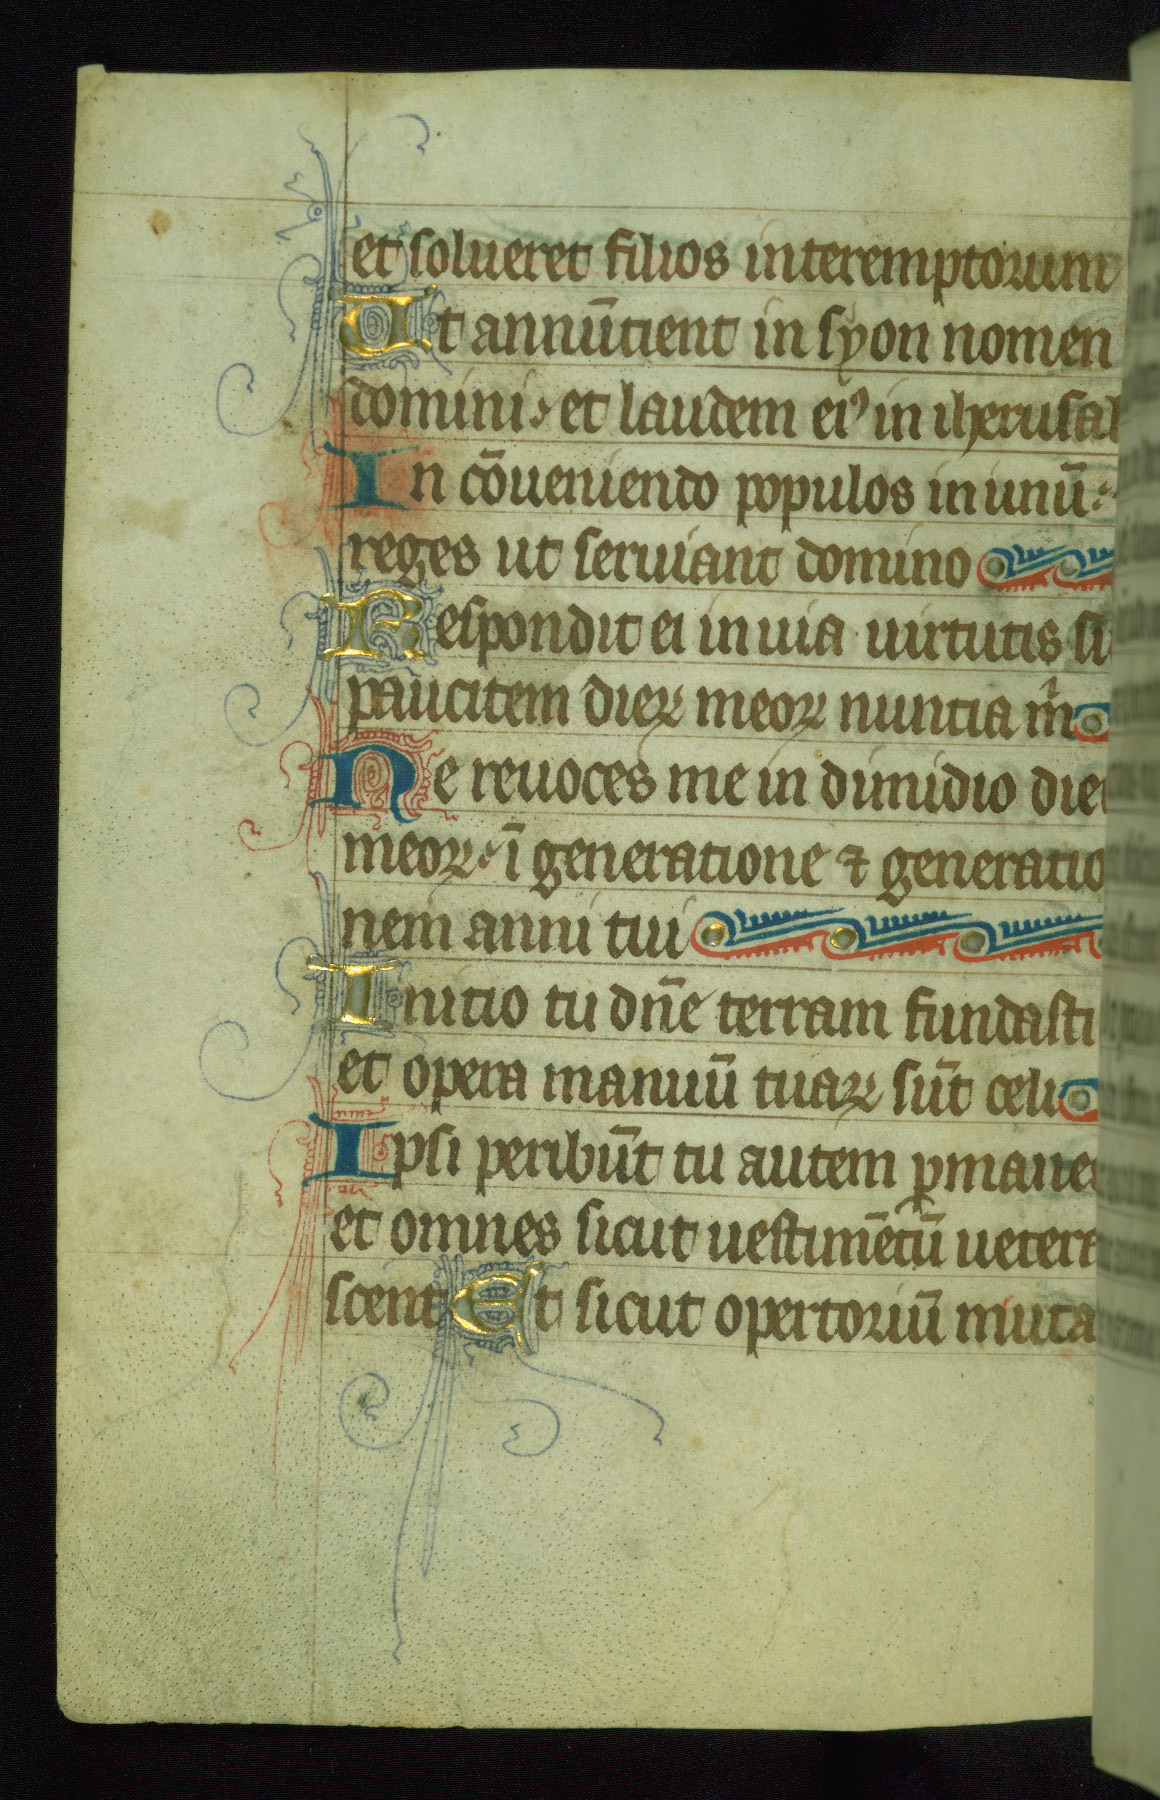 et solueret filios interemptorum
Ut annūtient in syon nomen
domini et laudem eiꝰ in iherusal
In cōueniendo populos in unū
reges ut seruiant domino
Respondit ei in uia uirtutis
paucitem dieꝝ meoꝝ nuntia m̄
Ne reuoces me in dimidio
meoꝝ ī generatione ⁊ generatio
nem anni tui
Initio tu dn̄e terram fundasti
et opera manuū tuaꝝ sūt celi
Ipsi peribūt tu autem
et omnes sicut uestimētū
scent Et sicut opertoriū muta